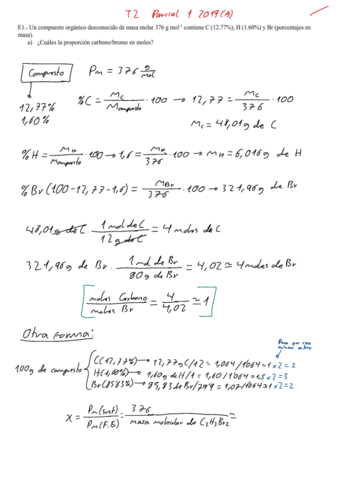 T2 Parcial 1 2019(A)
E1.- Un compuesto orgánico desconocido de masa molar 376 g mol⁻¹ contiene C (12.77%), H (1.60%) y Br (porcentajes en masa).
a) ¿Cuáles la proporción carbono/bromo en moles?
Compuesto
Pm = 376 g/mol
12,77%
1,60%
%C = Mc/Mcompuesto · 100 → 12,77 = Mc/376 · 100
Mc = 48,01g de C
%H = MH/Mcompuesto · 100 → 1,6 = MH/376 · 100 → MH = 6,016g de H
%Br (100-12,77-1,6) = MBr/376 · 100 → 321,96g de Br
48,01g de C · 1 mol de C/12g de C = 4 moles de C
321,96g de Br · 1 mol de Br/80g de Br = 4,02 ≃ 4 moles de Br
[moles Carbono/moles Br = 4/4,02 ≃ 1]
Otra forma:
Para que sea
100g de compuesto
C(12,77%) → 12,77g C/12 = 1,064/1,064 = 1 x2 = 2
H(1,60%) → 1,60g de H/1 = 1,60/1,064 = 1,5 x2 = 3
Br(85,83%) → 85,83 de Br/79,9 = 1,07/1,064 = 1 x2 = 2
X = Pm(sust)/Pm(F.E) = 376/masa molecular de C₂H₃Br₂ =